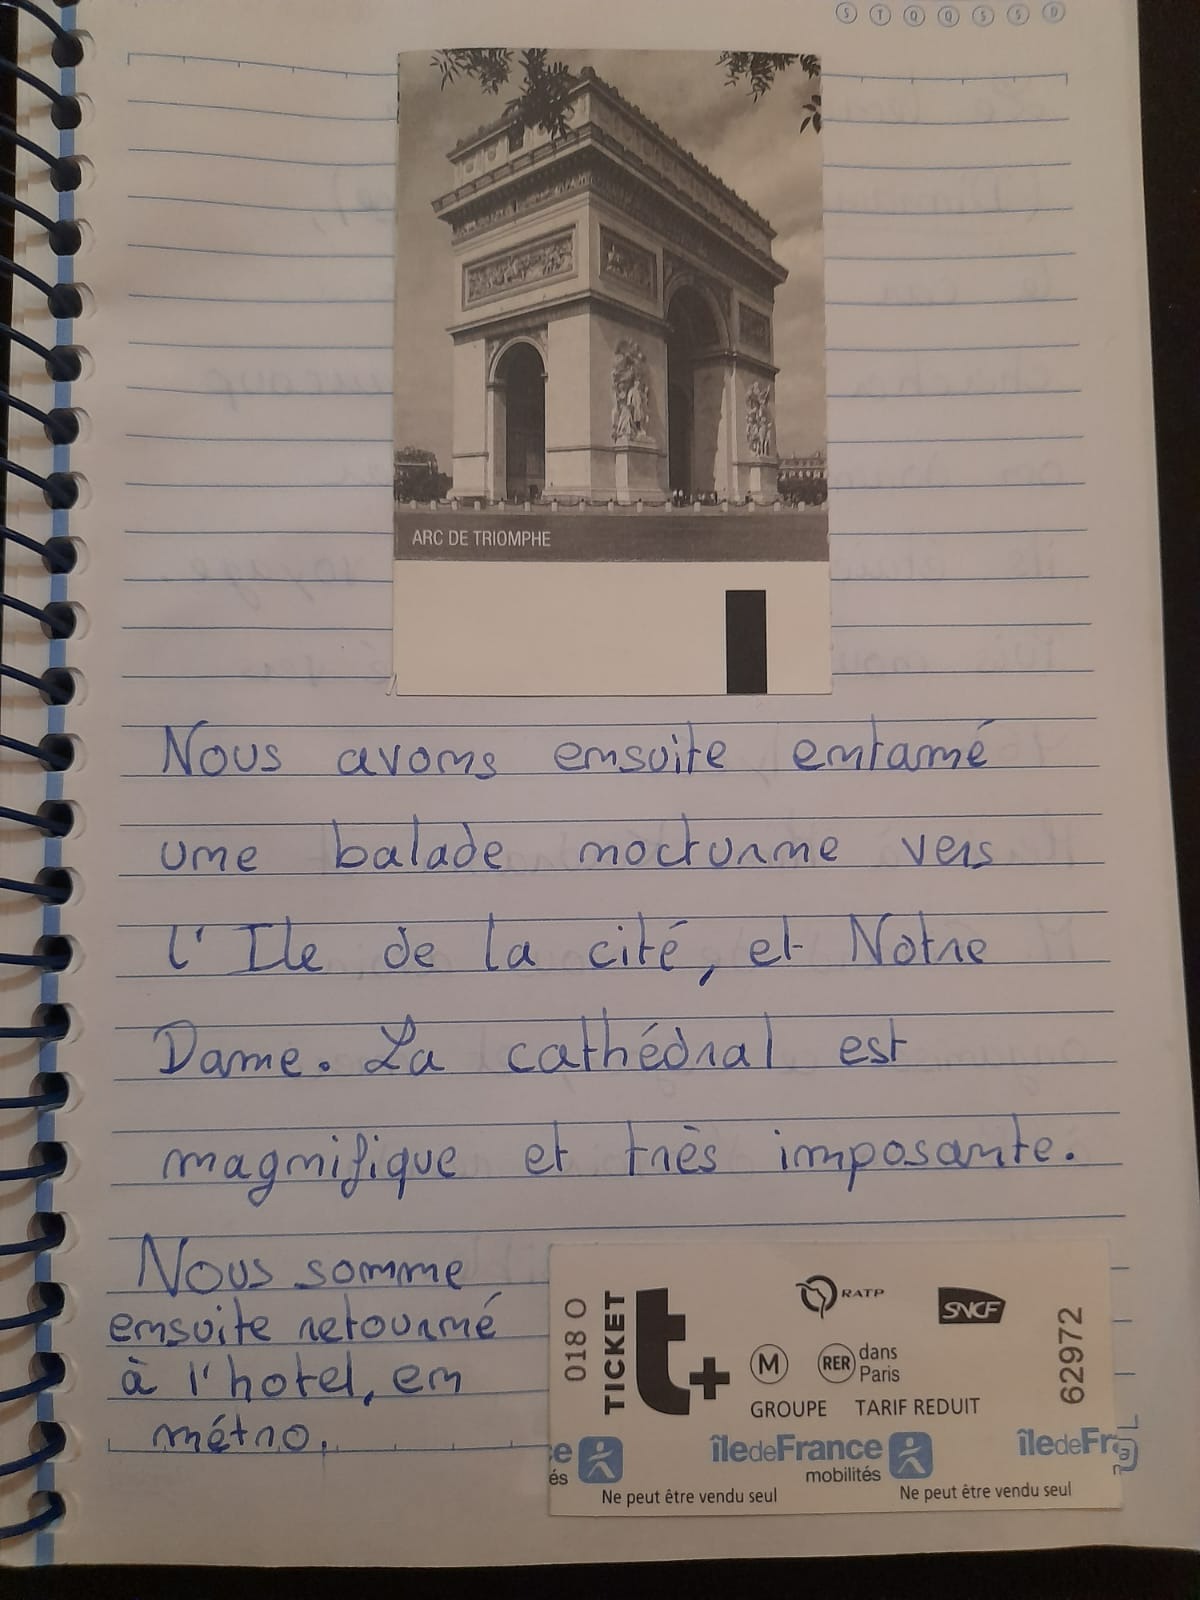 S T Q Q S S D
ARC DE TRIOMPHE
Nous avons ensuite entamé
une balade nocturne vers
l'Ile de la cité, et Notre
Dame. La cathédral est
magnifique et très imposante.
Nous somme
ensuite retourné
à l'hotel, en
métro.
018 O
TICKET
t+
RATP
SNCF
M
RER dans
Paris
GROUPE TARIF REDUIT
62972
e îledeFrance îledeFr
és mobilités
Ne peut être vendu seul Ne peut être vendu seul